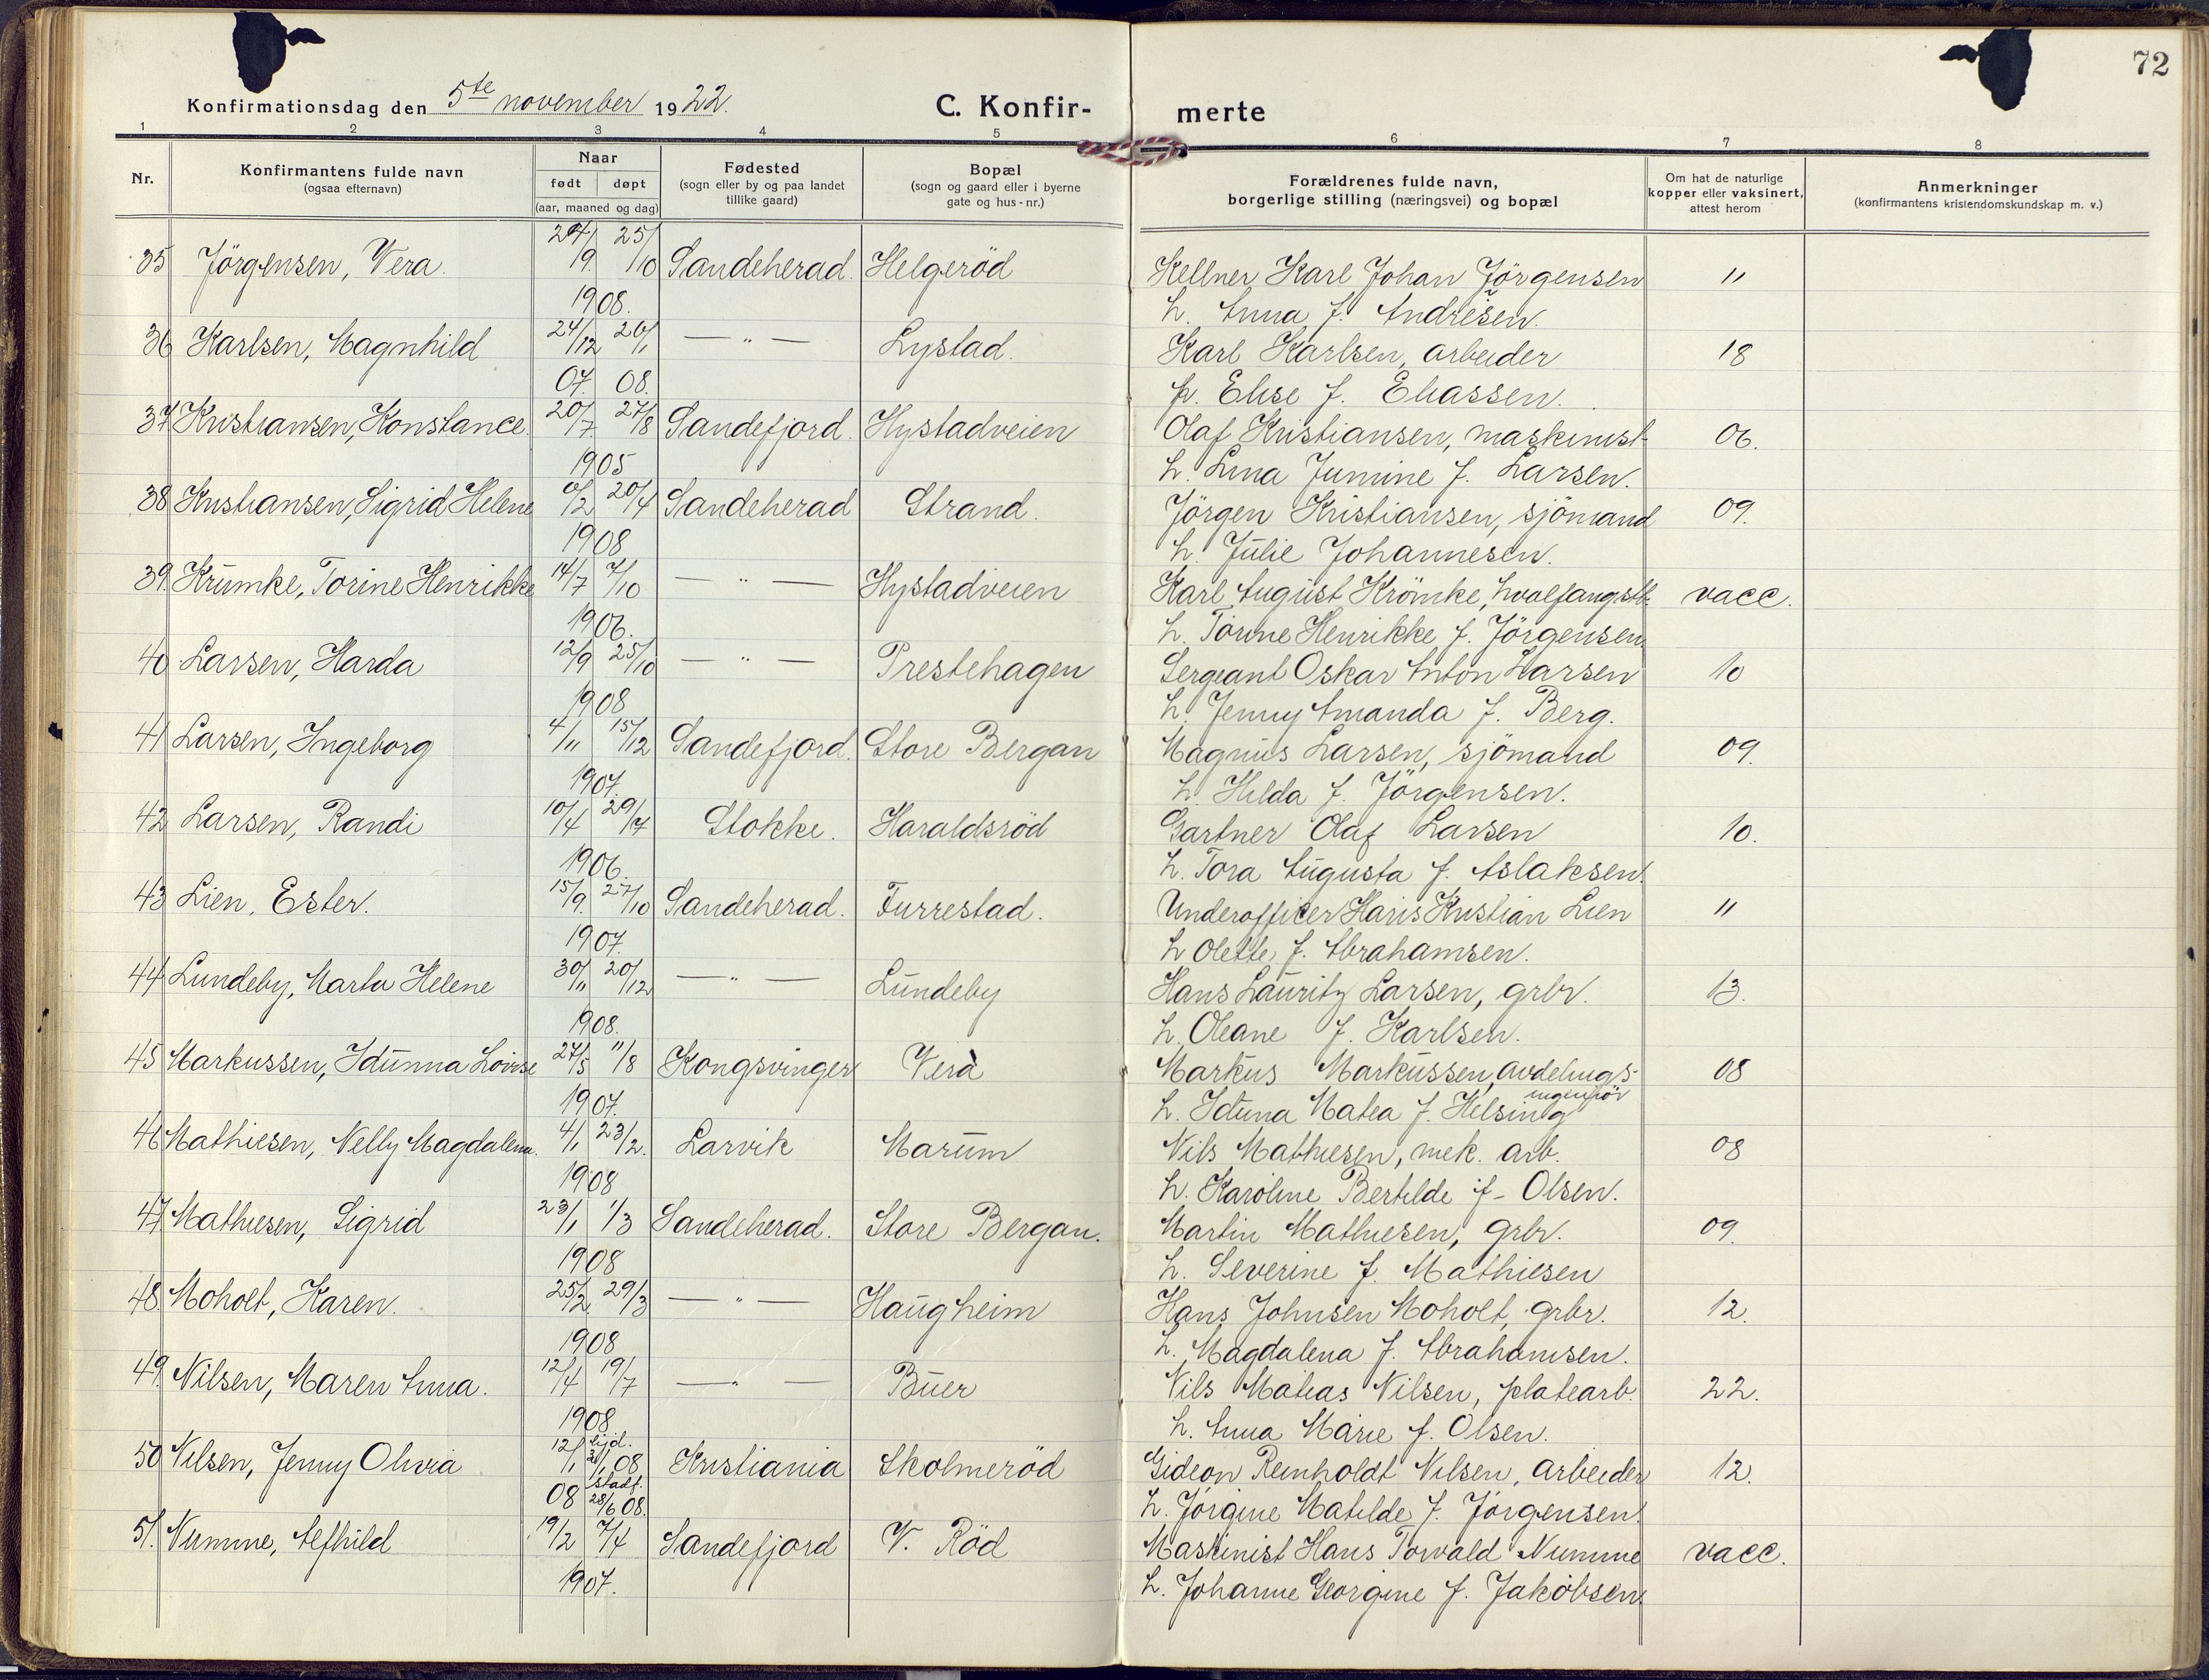 72
Konfirmationsdag den 5te november 1922.
C. Konfir- merte
1 2 3 4 5 6 7 8
Nr.
Konfirmantens fulde navn
(ogsaa efternavn)
Naar
født døpt
(aar, maaned og dag)
Fødested
(sogn eller by og paa landet
tillike gaard)
Bopæl
(sogn og gaard eller i byerne
gate og hus-nr.)
Forældrenes fulde navn,
borgerlige stilling (næringsvei) og bopæl
Om hat de naturlige
kopper eller vaksinert,
attest herom
Anmerkninger
(konfirmantens kristendomskundskap m. v.)
35 Jörgensen, Vera. 24/9. 25/10 Sandeherad. Helgeröd Kellner Karl Johan Jörgensen 11
1908. h. Anna f. Andresen.
36 Karlsen, Magnhild 24/12 20/1 — " — Lystad. Karl Karlsen, arbeider 18
07. 08. p. Elise f. Eliassen.
37 Kristiansen, Konstance. 20/7. 27/8 Sandefjord. Hystadveien Olaf Kristiansen, maskinist 06.
1905 h. Lina Jumine f. Larsen.
38 Kristiansen, Sigrid Helene /2 20/4 Sandeherad Strand. Jörgen Kristiansen, sjömand 09.
1908 h. Julie Johannesen.
39. Krumke, Torine Henrikke 14/7 7/10 — " — Hystadveien Karl August Krömke, hvalfangstb. vacc.
1906. h. Torine Henrikke f. Jörgensen.
40 Larsen, Harda 12/9 25/10 — " — Prestehagen Sergeant Oskar Anton Larsen 10
1908 h. Jenny Amanda f. Berg.
41 Larsen, Ingeborg 4/11 15/12 Sandefjord. Store Bergan Magnus Larsen, sjömand 09.
1907. h. Hilda f. Jörgensen.
42 Larsen, Randi 10/4 29/7 Stokke. Haraldsröd Gartner Olaf Larsen 10.
1906. h. Tora Augusta f. Aslaksen.
43 Lien, Ester. 15/9. 27/10 Sandeherad. Furrestad. Underofficer Hans Kristian Lien 11
1907. h Olette f. Abrahamsen.
44 Lundeby, Marta Helene 30/11 20/12 — " — Lundeby Hans Lauritz Larsen, grbr. 13.
1908. h. Oleane f. Karlsen.
45 Markussen, Idunna Lovise 27/5 11/8 Kongsvinger Vera Markus Markussen, avdelings- 08
ingeniör
1907. h. Iduna Matea f. Helsing
46 Mathiesen, Nelly Magdalena. 4/1 23/2. Larvik Marum Nils Mathiesen, mek. arb. 08
1908 h. Karoline Bertilde f- Olsen.
47 Mathiesen, Sigrid 23/1 1/3 Sandeherad. Store Bergan. Martin Mathiesen, grbr. 09.
1908 h. Severine f. Mathiesen
48. Moholt, Karen. 25/2 29/3 — " — Haugheim Hans Johnsen Moholt, grbr. 12.
1908 h. Magdalena f. Abrahamsen.
49. Nilsen, Maren Anna. 12/4 19/7 — " — Buer Nils Matias Nilsen, platearb. 22.
1908 h. Anna Marie f. Olsen.
50 Nilsen, Jenny Olivia 12/1 08 Kristiania Skolmeröd Gideon Reinholdt Nilsen, arbeider 12.
08 stadf. 28/6 08. h. Jörgine Matilde f. Jörgensen.
51. Numme, Alfhild 19/2 7/4 Sandefjord V. Röd Maskinist Hans Torvald Numme vacc.
1907. h. Johanne Georgine f. Jakobsen.